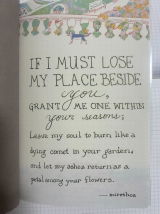 IF I MUST LOSE
MY PLACE BESIDE
you,
GRANT ME ONE WITHIN
your seasons;
Leave my soul to burn like a
dying comet in your garden,
and let my ashes return as a
petal among your flowers.